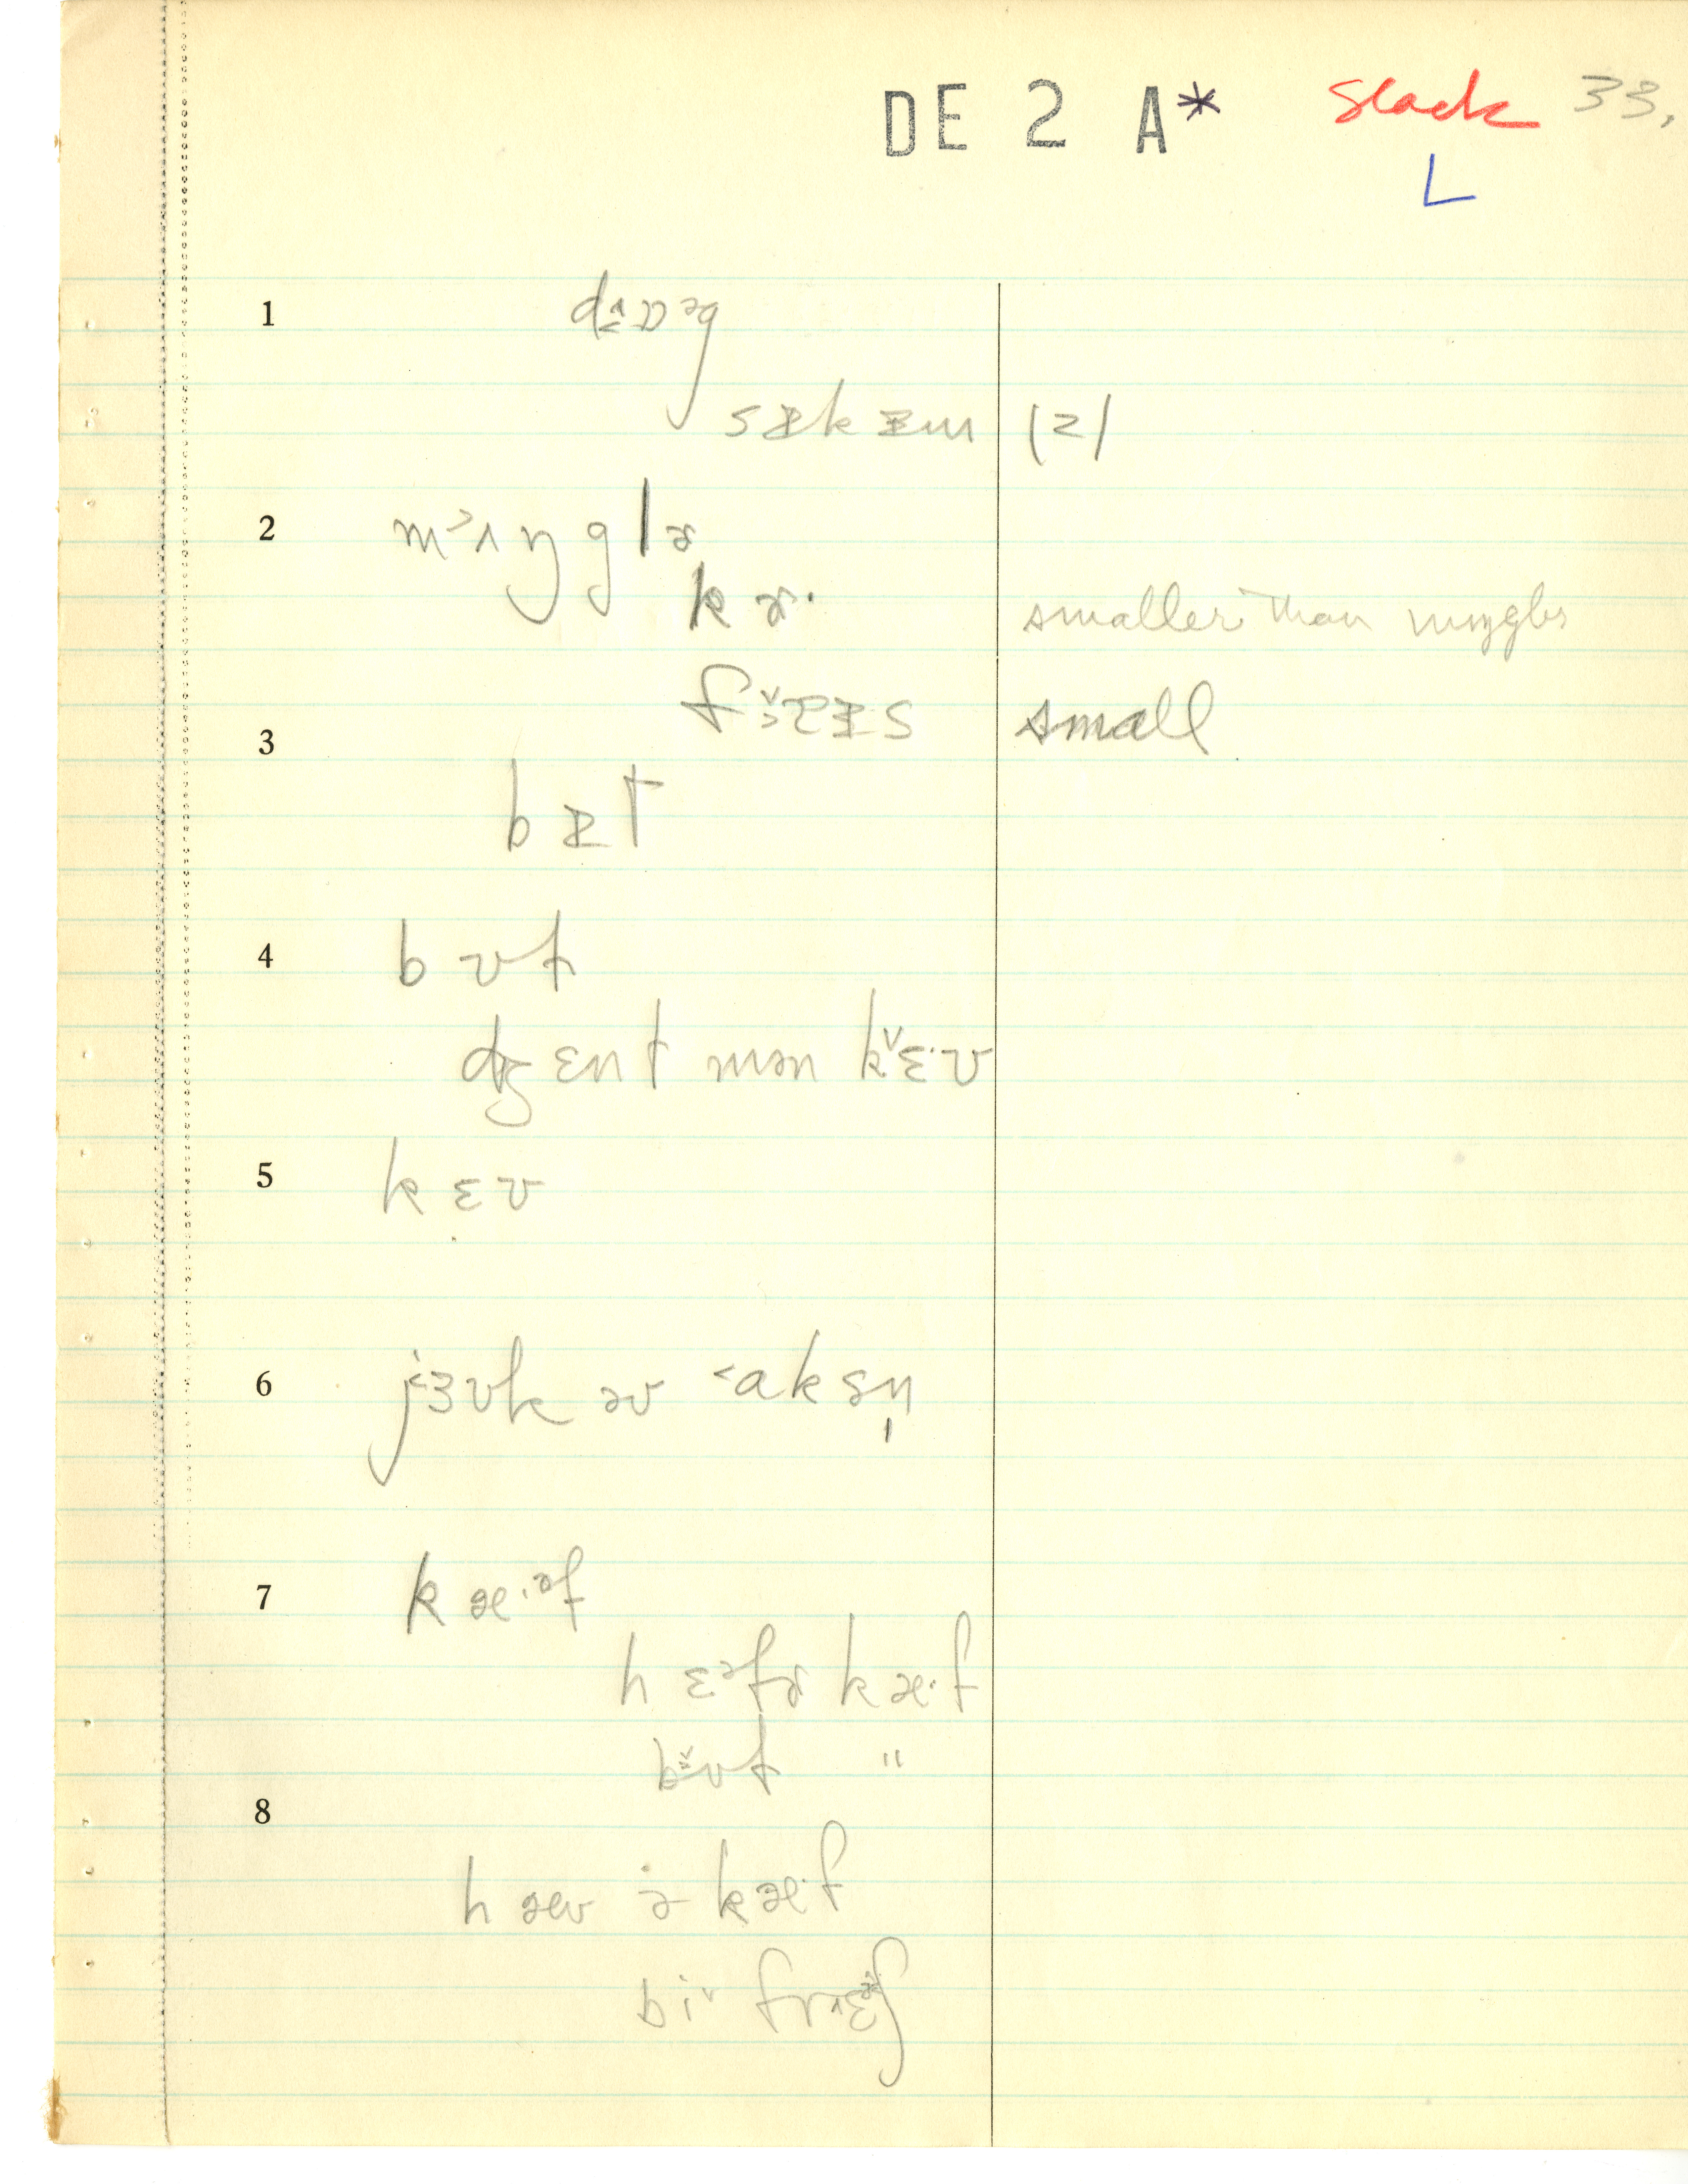 DE 2 A* slack 33.
L
1 dɒəg
sɪkɪm (2)
2 mʌŋglɚ
kɚ· smaller than mʌŋglɚ
fɪɪs small
3 bɪt
4 bʊt
dʒɛnt mən kɛ·ʊ
5 kɛʊ
6 jɜʊk əv aksn̩
7 kæ·əf
hɛəfɚ kæ·f
bʊt "
8
hæv ə kæ·f
bi frɛʃ